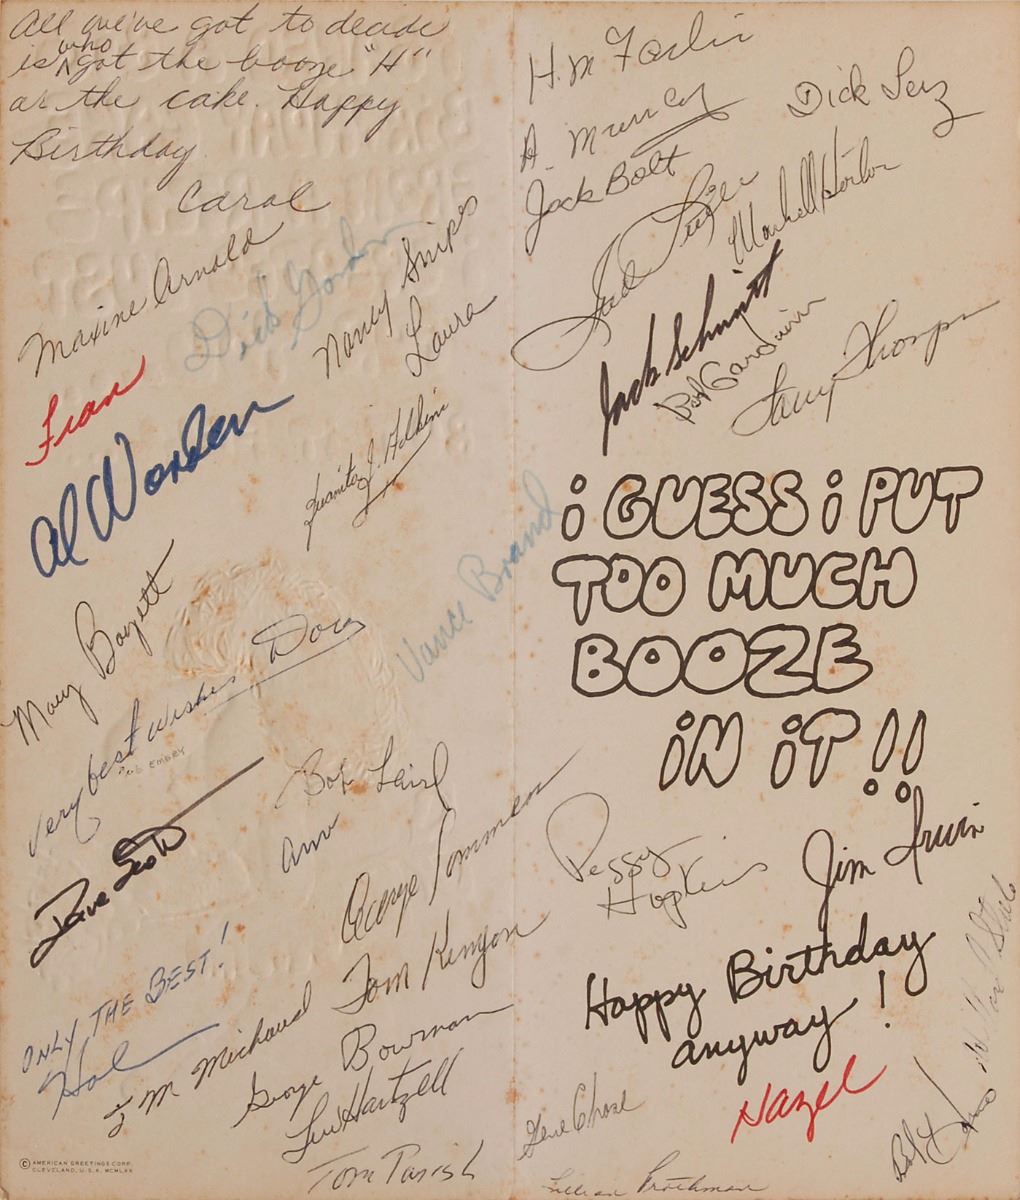 All we've got to decide
is who got the booze "H"
or the cake. Happy
Birthday.
Carol
Maxine Arnold
Dick Gordon
Nancy Snipes
Laura
Fran
Al Worden
Juanita J.
Vance Brand
Mary Boyett
Very best wishes Dory
Bob Embry
Bob Laird
Ann
Dave Scott
George Sommer
ONLY THE BEST!
Hal
Michaud
Tom Kenyon
George Bowman
Lew Hartzell
Tom Parish
© AMERICAN GREETINGS CORP.
CLEVELAND, U.S.A. MCMLXX
H. M.
Dick
A. Murray
Jack Bolt
Jack Schmitt
Bob Gardiner
Larry Thompson
i GUESS i PUT
TOO MUCH
BOOZE
iN iT!!
Peggy
Hopkins
Jim Irwin
Happy Birthday
anyway!
Hazel
Gene Chase
Lillian Prothman
Bob